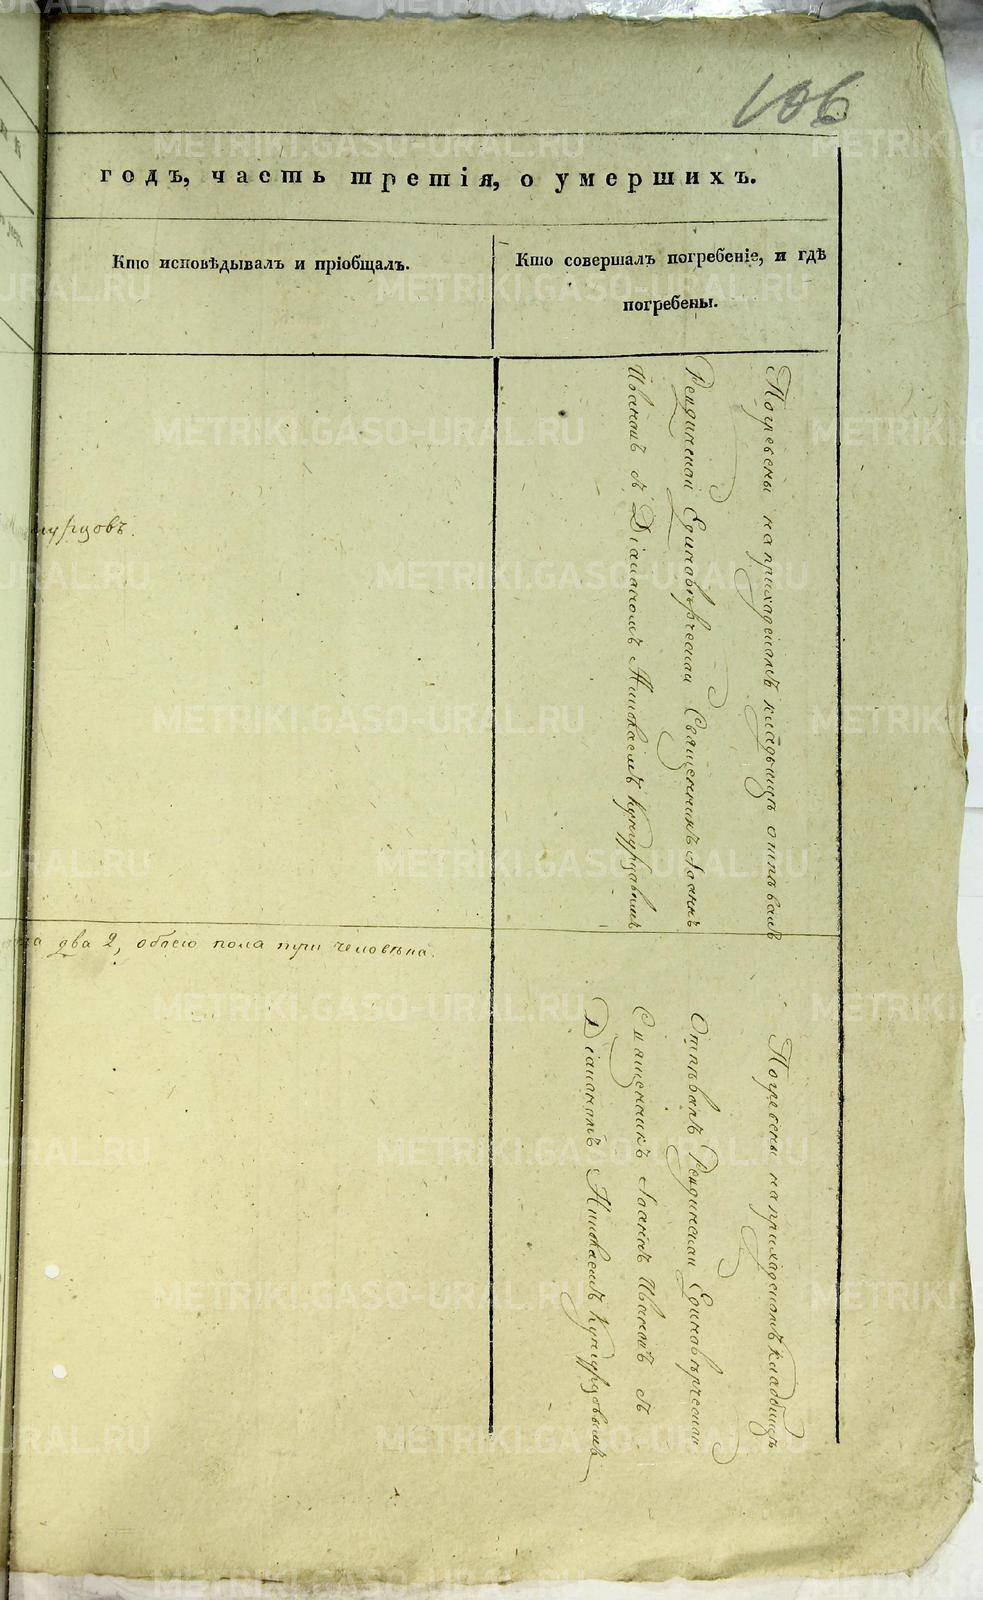 106
годъ, часть третія, о умершихъ.
Кто исповѣдывалъ и пріобщалъ.
Кто совершалъ погребеніе, и гдѣ
погребены.
Погребены на приходскомъ кладбищѣ отпѣвалъ
Единовѣрческой Священникъ Іоаннъ
Ивановъ съ Діакономъ Кунгурцовымъ
нгурцовъ.
два 2, обоего пола три человѣка.
Погребены на приходскомъ кладбищѣ
Отпѣвалъ Единовѣрческой
Священникъ Іоаннъ Ивановъ съ
Діакономъ Кунгурцовымъ
METRIKI.GASO-URAL.RU